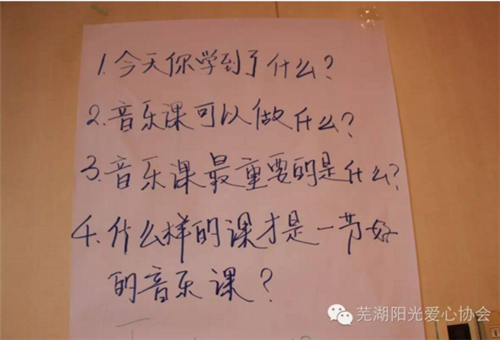 1.今天你学到了什么?
2.音乐课可以做什么?
3.音乐课最重要的是什么?
4.什么样的课才是一节好
的音乐课?
芜湖阳光爱心协会